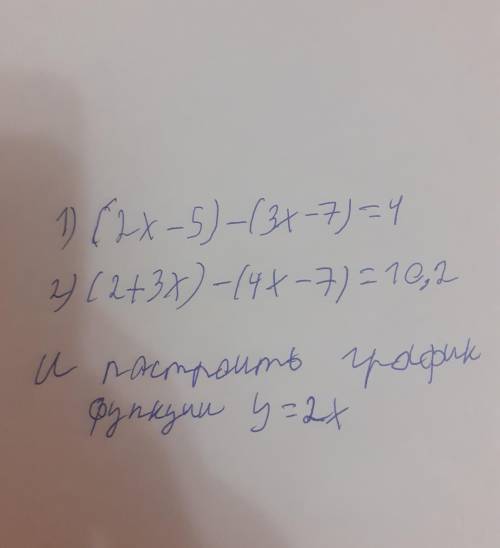 1) (2x-5)-(3x-7)=4
2) (2+3x)-(4x-7)=10,2
и построить график
функции y=2x